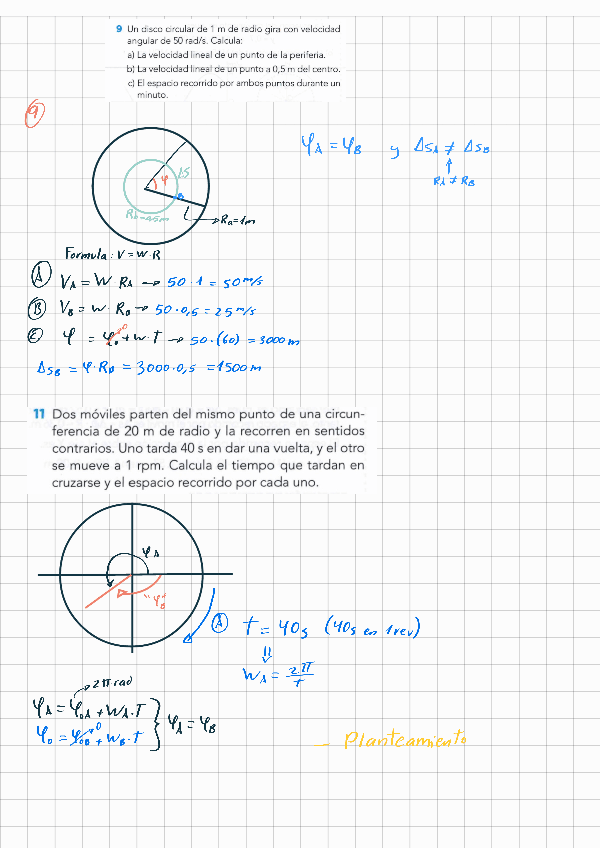 9 Un disco circular de 1 m de radio gira con velocidad
angular de 50 rad/s. Calcula:
a) La velocidad lineal de un punto de la periferia.
b) La velocidad lineal de un punto a 0,5 m del centro.
c) El espacio recorrido por ambos puntos durante un
minuto.
9
φA = φB y ΔSA ≠ ΔSB
RA ≠ RB
φ ΔS
Rb=0.5m
Ra=1m
Formula: V = W·R
A VA = W RA → 50·1 = 50 m/s
B VB = W·RB → 50·0,5 = 25 m/s
C φ = φ0 + W·T → 50·(60) = 3000m
ΔSB = φ·RB = 3000·0,5 = 1500m
11 Dos móviles parten del mismo punto de una circun-
ferencia de 20 m de radio y la recorren en sentidos
contrarios. Uno tarda 40 s en dar una vuelta, y el otro
se mueve a 1 rpm. Calcula el tiempo que tardan en
cruzarse y el espacio recorrido por cada uno.
φA
"φB"
A T = 40s (40s en 1rev)
WA = 2·π/T
2π rad
φA = φ0A + WA·T
φB = φ0B + WB·T
φA = φB
- Planteamiento